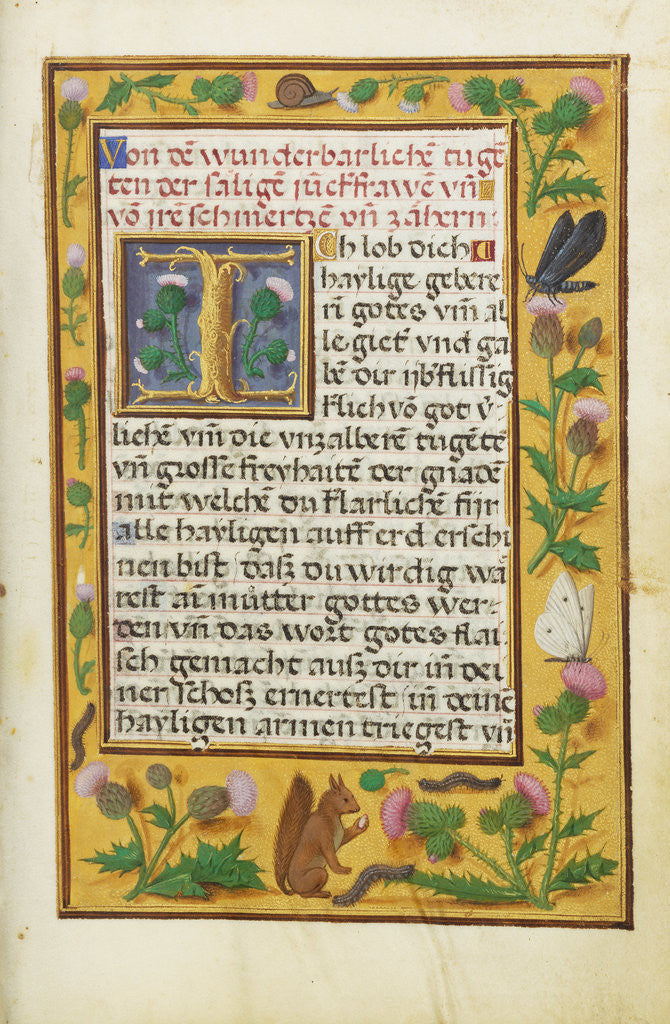 Von dē wunderbarlichē tugē
ten der säligē jūckfrawē vn̄
vō jrē schmertzē vn̄ zähern:
I Ch lob dich
haylige gebere
rī gotes vn̄ al
le zīet vnd ga
bē dir
klich vō got v̄
lichē vn̄ die vnzalberē tugēte
vn̄ grosse freyhaitē der gnadē
mit welchē du klarlichē für
alle hayligen auff erd erschi
nen bist daſz du wirdig wä
rest ain mūtter gottes wer
den vn̄ das wort gotes flai
sch gemacht auſz dir in dei
ner schoſz ernertest in deinē
hayligen armen triegest vn̄